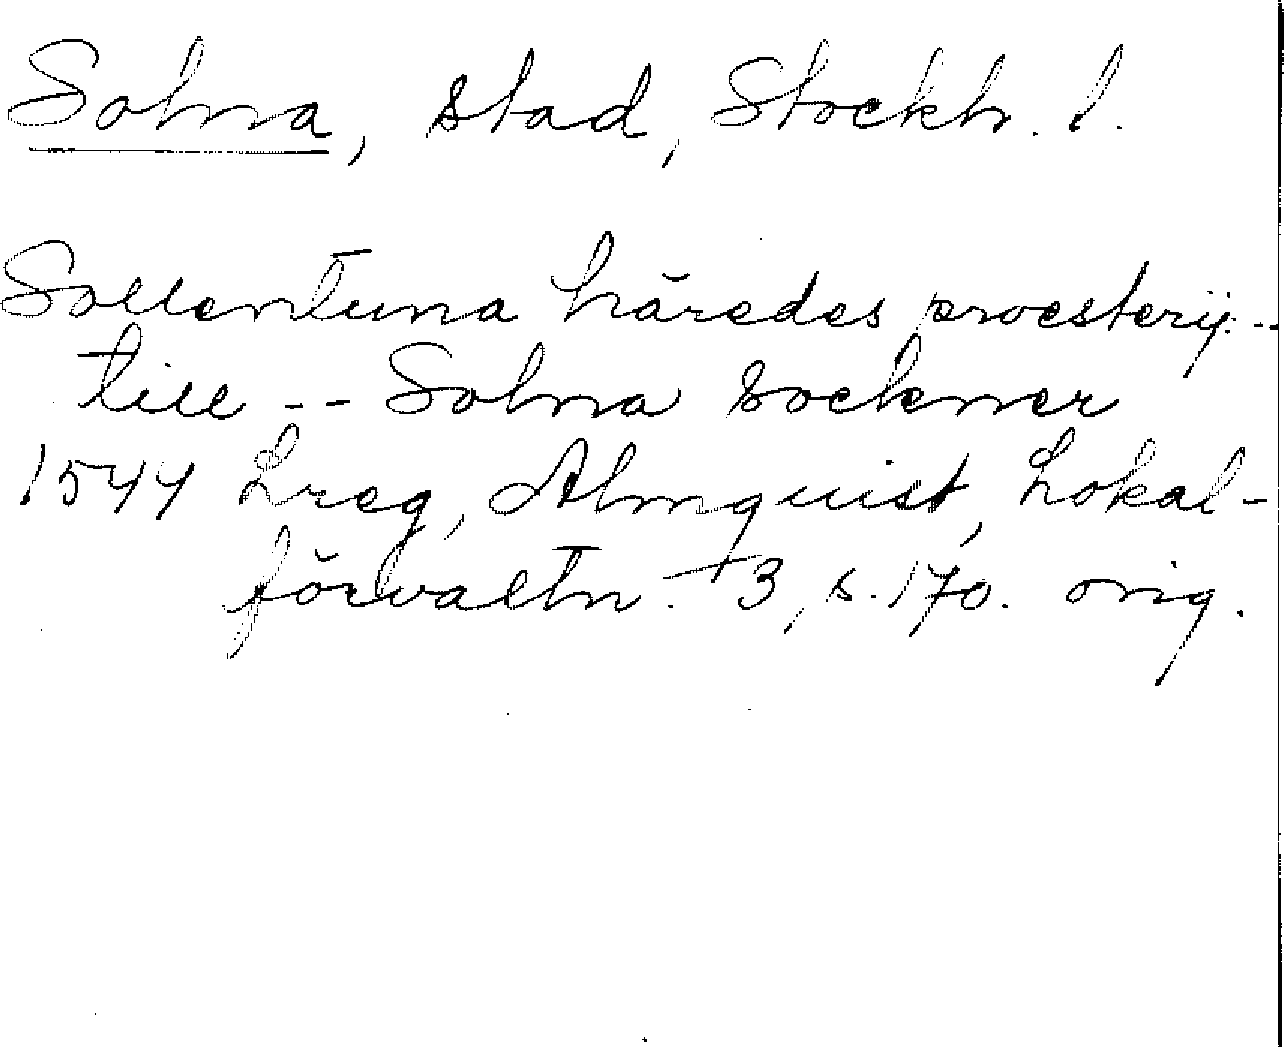 Solna, stad, Stockh. l.
Sollentuna häredes proesterij --
till -- Solna sockner
1544 Lreg, Almquist, Lokal-
förvaltn. 3, s. 170. orig.